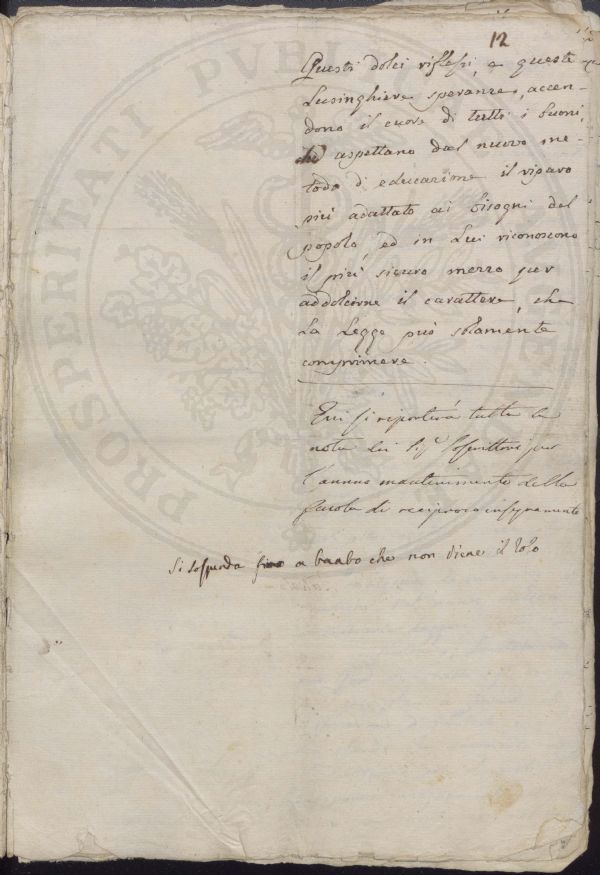 12
Questi dolci riflessi, e queste
Lusinghiere speranze, accen-
dono il cuore di tutti i buoni,
che aspettano dal nuovo me-
todo di educazione il riparo
più adattato ai bisogni del
popolo, ed in Lui riconoscono
il più sicuro mezzo per
addolcirne il carattere, che
La Legge può solamente
comprimere.
Qui si riporterà tutta la
nota dei Sig.i Soscrittori per
l'annuo mantenimento della
Scuola di reciproco insegnamento
Si sospenda fino a che non viene il
PROSPERITATI PVBLI